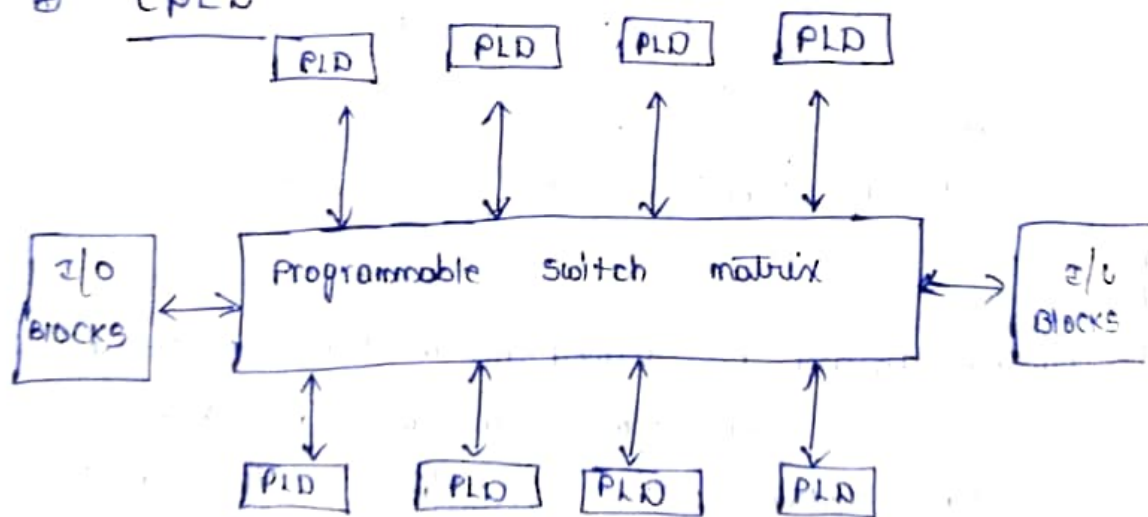 CPLD
PLD PLD PLD PLD
I/O
BLOCKS
Programmable switch matrix
BLOCKS
PLD PLD PLD PLD